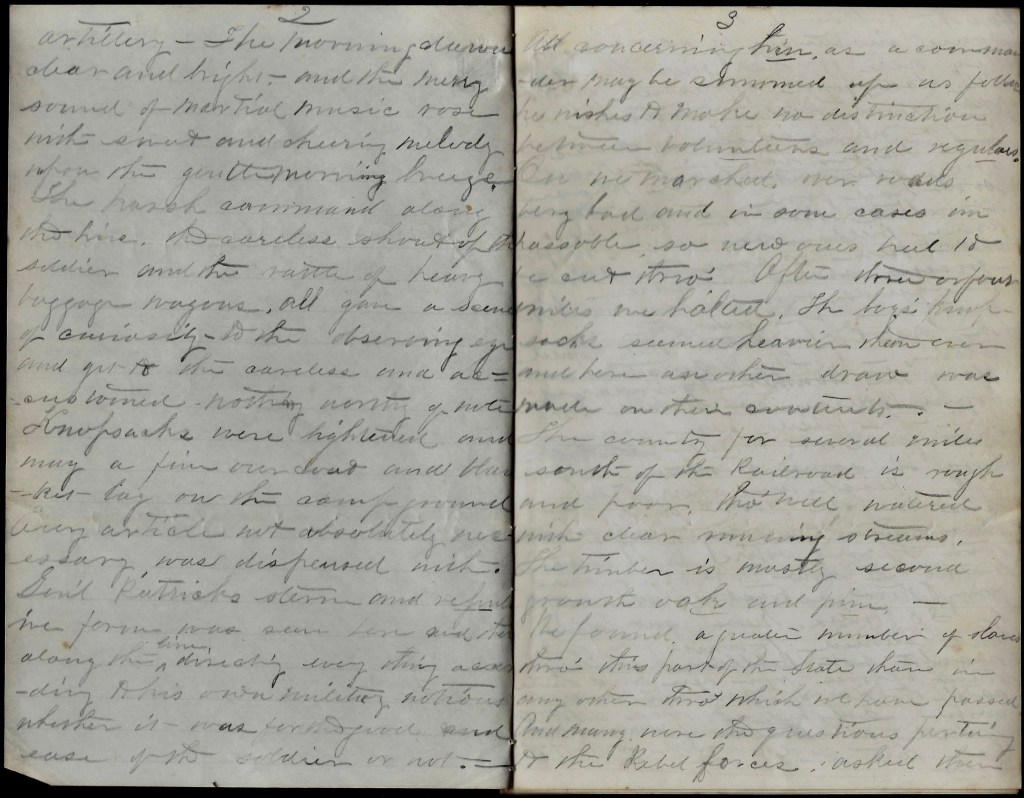 2
artillery – The morning dawned
clear and bright – and the merry
sound of martial music rose
with sweet and cheering melody
upon the gentle morning breeze.
The harsh command along
the line, the careless shout of the
soldier and the rattle of heavy
baggage wagons, all gave a scene
of curiosity – to the observing eye
and yet to the careless and ac=
-customed nothing worthy of note
Knapsacks were lightened and
many a fine over coat and blan
-ket lay on the camp ground
Every article not absolutely nec
essary was dispensed with.
Gen'l Patricks stern and
ive form was seen here and there
along the line directing every thing accor
-ding to his own military notions
whether it was for the good and
ease of the soldier or not. –
3
All concerning him, as a comman
-der may be summed up as follows
he wishes to make no distinction
between volunteers and regulars.
On we marched, over roads
very bad and in some cases im
passable, so new ones had to
be cut thro' After three or four
miles we halted, The boys' knap-
sacks seemed heavier than ever
and here another draw was
made on their contents. –
The country for several miles
south of the Railroad is rough
and poor, tho' well watered
with clear running streams.
The timber is mostly second
growth oak and pine, –
We found a greater number of slaves
thro' this part of the State than in
any other thro' which we have passed
And many were the questions
to the Rebel forces, asked them